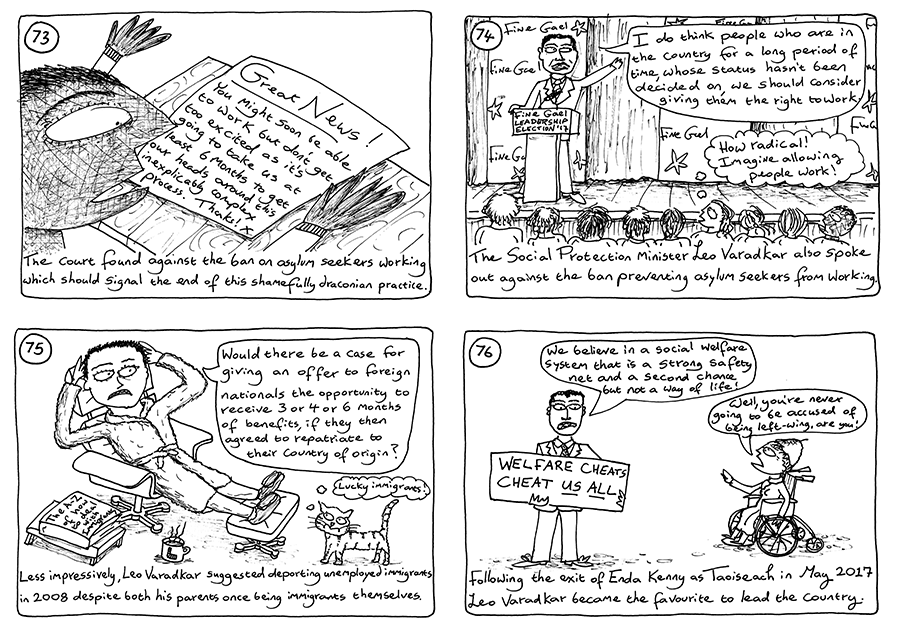 73
Great News!
You might soon be able
to work but don't get
too excited as it's
going to take us at
least 6 months to get
our heads around this
inexplicably complex
process. Thanks! x
The Court found against the ban on asylum seekers working
which should signal the end of this shamefully draconian practice.
74
Fine Gael
Fine Gael
Fine Gael
Fine Gael
Fine Gael
FINE GAEL
LEADERSHIP
ELECTION '17
I do think people who are in
the country for a long period of
time, whose status hasn't been
decided on, we should consider
giving them the right to work.
How radical!
Imagine allowing
people work!
The Social Protection Minister Leo Varadkar also spoke
out against the ban preventing asylum seekers from working.
75
Would there be a case for
giving an offer to foreign
nationals the opportunity to
receive 3 or 4 or 6 months
of benefits, if they then
agreed to repatriate to
their country of origin?
Lucky immigrants.
The A-Z
of how
to deal
with
L
Less impressively, Leo Varadkar suggested deporting unemployed immigrants
in 2008 despite both his parents once being immigrants themselves.
76
We believe in a social welfare
system that is a strong safety
net and a second chance
but not a way of life!
Well, you're never
going to be accused of
being left-wing, are you!
WELFARE CHEATS
CHEAT US ALL
Following the exit of Enda Kenny as Taoiseach in May 2017
Leo Varadkar became the favourite to lead the country.